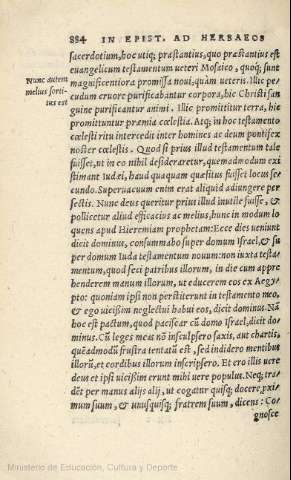 884 IN EPIST. AD HERBAEOS
sacerdotium, hoc utiq; præstantius, quo præstantius est
Nunc autem
melius sorti-
tus est
euangelicum testamentum ueteri Mosaico, quoq; sunt
magnificentiora promissa noui, quàm ueteris. Illic pe
cudum cruore purificabantur corpora, hic Christi san
guine purificantur animi. Illic promittitur terra, hic
promittuntur præmia cœlestia. Atq; in hoc testamento
cœlesti ritu intercedit inter homines ac deum pontifex
noster cœlestis. Quod si prius illud testamentum tale
fuisset, ut in eo nihil desideraretur, quemadmodum exi
stimant Iudæi, haud quaquam quæsitus fuisset locus se
cundo. Superuacuum enim erat aliquid adiungere per
fectis. Nunc deus queritur prius illud inutile fuisse, &
pollicetur aliud efficacius ac melius, hunc in modum lo
quens apud Hieremiam prophetam: Ecce dies ueniunt
dicit dominus, consummabo super domum Israel, & su
per domum Iuda testamentum nouum: non iuxta testa=
mentum, quod feci patribus illorum, in die cum appre
henderem manum illorum, ut educerem eos ex Aegy
pto: quoniam ipsi non perstiterunt in testamento meo,
& ego uicissim neglectui habui eos, dicit dominus. Nā
hoc est pactum, quod paciscar cū domo Israel, dicit do
minus. Cū leges meas nō insculpsero saxis, aut chartis,
quēadmodū frustra tentatū est, sed indidero mentibus
illorū, et cordibus illorum inscripsero. Et ero illis uere
deus et ipsi uicissim erunt mihi uere populus. Neq; tra=
dēt per manus alijs alij, ut cogatur quisq; docere proxi
mum suum, & unusquisq; fratrem suum, dicens: Co=
gnosce
Ministerio de Educación, Cultura y Deporte